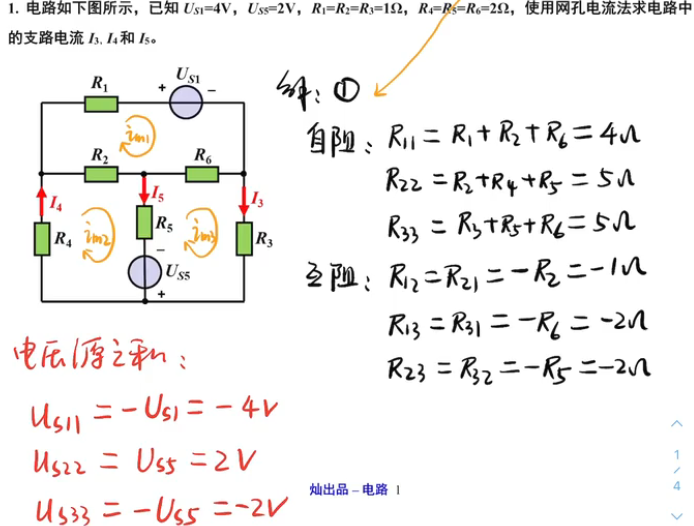 1. 电路如下图所示，已知 US1=4V，US5=2V，R1=R2=R3=1Ω，R4=R5=R6=2Ω，使用网孔电流法求电路中
的支路电流 I3, I4 和 I5。
R1
+ US1 −
im1
R2
R6
I4
I5
I3
R4
im2
R5
im3
R3
−
US5
+
解：①
自阻：R11 = R1 + R2 + R6 = 4Ω
R22 = R2 + R4 + R5 = 5Ω
R33 = R3 + R5 + R6 = 5Ω
互阻：R12 = R21 = −R2 = −1Ω
R13 = R31 = −R6 = −2Ω
R23 = R32 = −R5 = −2Ω
电压源之和：
US11 = −US1 = −4V
US22 = US5 = 2V
US33 = −US5 = −2V
灿出品 – 电路 1
1
/
4